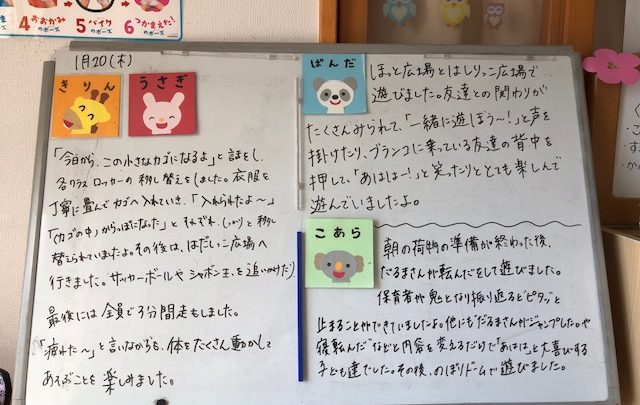 4 おおかみのポーズ 5 バイクのポーズ 6 つかまえた!のポーズ
1月20(木)
きりん
うさぎ
「今日から、この小さなカゴになるよ」と話をし、
各クラスロッカーの移し替えをしました。衣服を
丁寧に畳んでカゴへ入れていき、「入れられたよ〜」
「(カゴの中)からっぽになった」とそれぞれ、しっかりと移し
替えられていましたよ。その後は、はだしっこ広場へ
行きました。サッカーボールやシャボン玉を追いかけたり
最後には全員で3分間走もしました。
「疲れた〜」と言いながらも、体をたくさん動かして
あそぶことを楽しみました。
ぱんだ
ほっと広場とはしりっこ広場で
遊びました。友達との関わりが
たくさんみられて、「一緒に遊ぼう〜!」と声を
掛けたり、ブランコに乗っている友達の背中を
押して、「あはは〜!」と笑ったりととても楽しんで
遊んでいましたよ。
こあら
朝の荷物の準備が終わった後、
だるまさんが転んだをして遊びました。
保育者が鬼となり振り返るとピタッと
止まることができていましたよ。他にも"だるまさんがジャンプした。や
寝転んだ"などと内容を変えるだけで「あはは」と大喜びする
子ども達でした。その後、のぼりドームで遊びました。